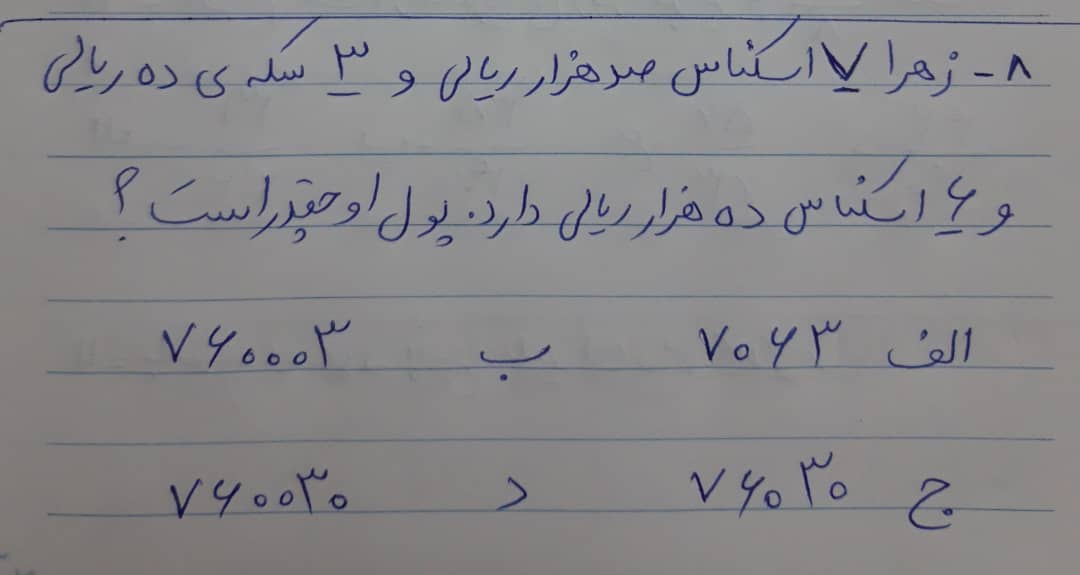 ۸- زهرا ۷ اسکناس صد هزار ریالی و ۳ سکه ی ده ریالی
و ۶ اسکناس ده هزار ریالی دارد. پول او چقدر است ؟
الف ۷۰۶۳ ب ۷۶۰۰۰۳
ج ۷۶۰۳۰ د ۷۶۰۰۳۰